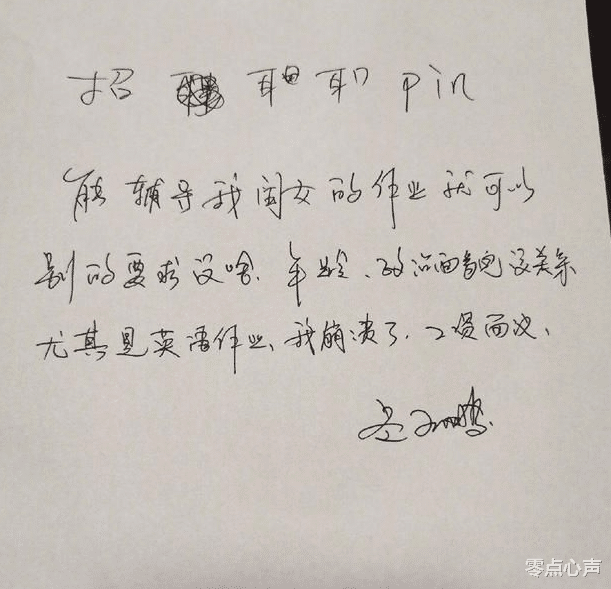 招 耳口 pin
能辅导我闺女的作业就可以
别的要求没啥、年龄、政治面貌没关系
尤其是英语作业、我崩溃了、工资面议、
岳云鹏
零点心声